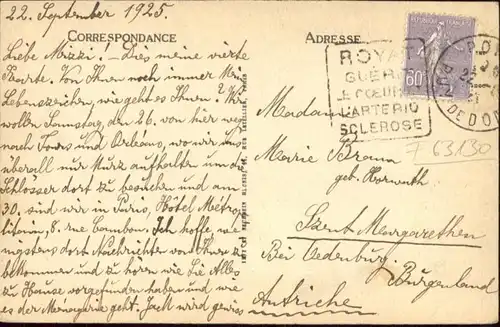 22. September 1925.
CORRESPONDANCE
Liebe Mizzi! Dies meine vierte
Karte. Von Ihnen noch immer kein
Lebenszeichen, wie geht es Ihnen? Wir
wollen Samstag, den 26. von hier weg
nach Tours und Orléans, wo wir uns
überall nur kurz aufhalten um die
Schlösser dort zu besuchen und am
30. sind wir in Paris, Hôtel Métro-
8. rue Cambon. Ich hoffe we-
nigstens dort Nachrichten von Ihnen zu
bekommen und zu hören wie Sie Alles
zu Hause vorgefunden haben und wie
es der Menagerie geht. Jack wird gewiss
ADRESSE
RÉPUBLIQUE FRANÇAISE
60c
ROYAT
GUÉRIT
LE COEUR
L'ARTÉRIO
SCLEROSE
PUY
DE DOME
F 63130
Madame
Marie Braun
geb. Horwath
Szent Margarethen
Bei Oedenburg
Burgenland
Autriche